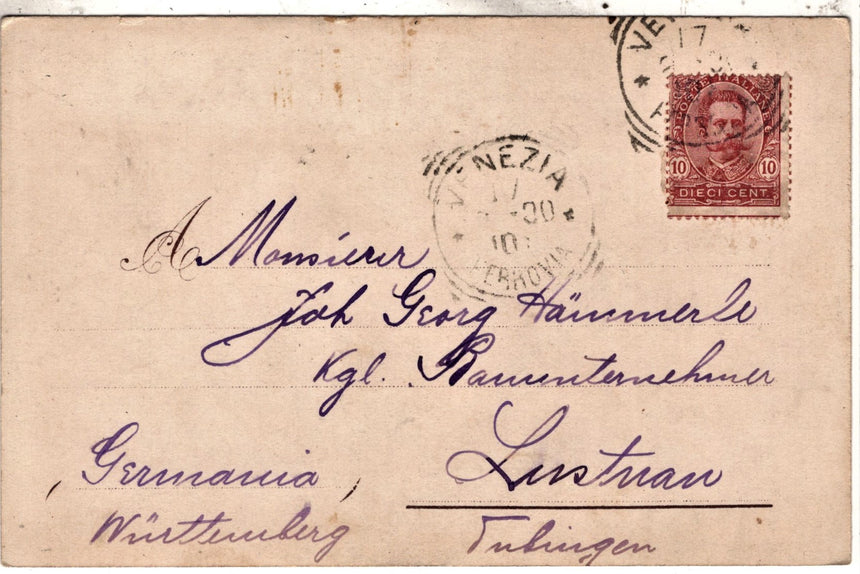 VENEZIA
17
POSTE ITALIANE
10 10
DIECI CENT.
VENEZIA
17
-00
10
FERROVIA
A Monsieur
Joh Georg Hämmerle
Kgl. Bauunternehmer
Lustnau
Germania
Württemberg
Tubingen